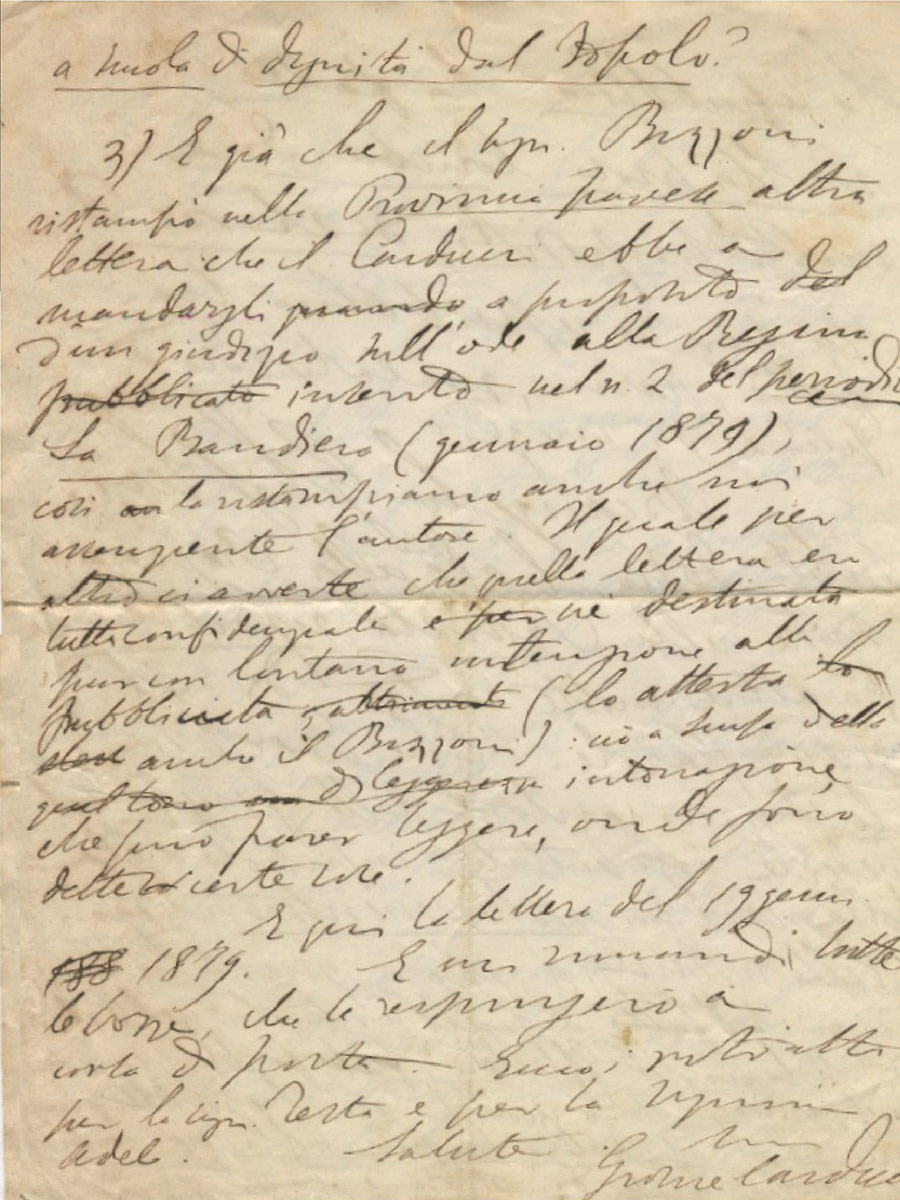 a scuola di dignità dal Popolo?
3) E già che il sign. Bizzoni
ristampò nella Provincia pavese altra
lettera che il Carducci ebbe a
mandargli quando a proposito del
d'un giudizio sull'ode alla Regina
pubblicato inserito nel n. 2 del periodico
La Bandiera (gennaio 1879),
così la ristampiamo anche noi
annuente l'autore. Il quale per
altro ci avverte che quella lettera era
tutta confidenziale e per né destinata
pur con lontana intenzione alla
pubblicità, altrimenti (lo attesta lo
anche il Bizzoni): ciò a scusa della
quel tono di leggerezza intonazione
che può parer leggera, onde sono
dette certe cose.
E qui la lettera del 19 genn.
188 1879. E mi rimandi tutte
le bozze, che le respingerò a
corta di posta. Ecco i ritratti
per la sign. Testa e per la signorina
Adele. Saluti.
suo
Giosue Carducci